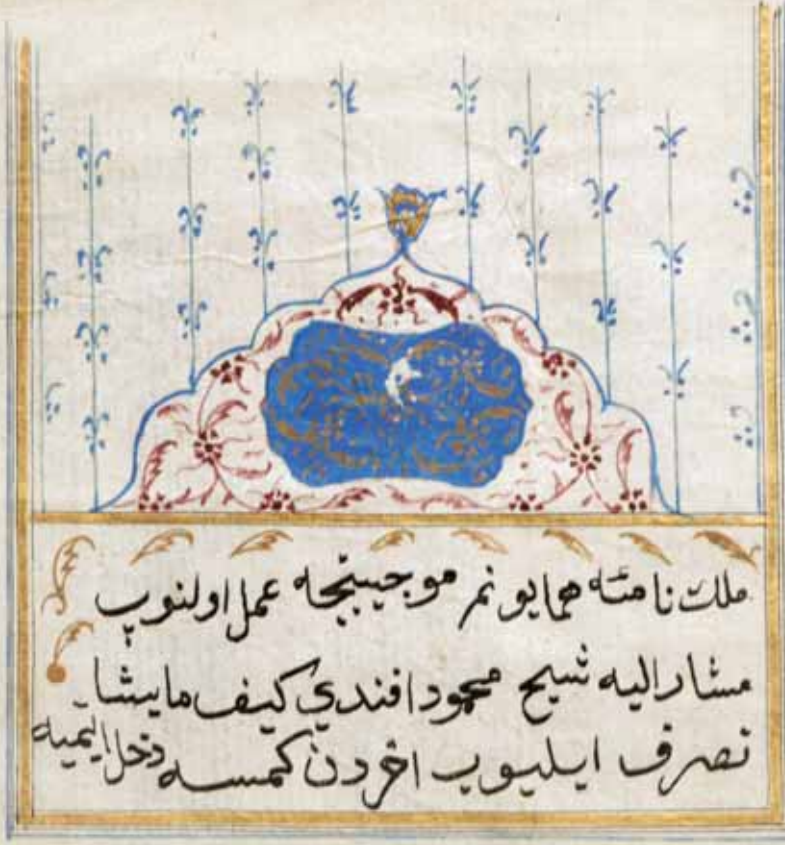 ملك نامۀ همايونم موجيبنجه عمل اولنوب
مشار اليه شيح محمود افندي كيف مايشا
تصرف ايليوب اخردن كمسه دخل ايتميه